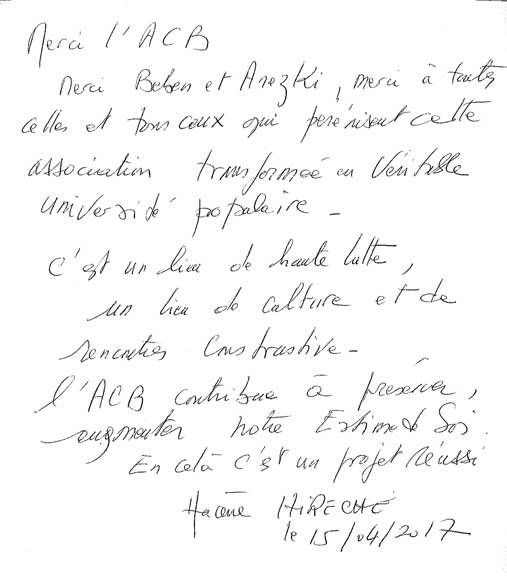 Merci l'ACB
Merci Beben et Arezki, merci à toutes
celles et tous ceux qui pérénisent cette
association transformée en Véritable
université populaire -
C'est un lieu de haute lutte,
un lieu de culture et de
rencontres Constructive -
l'ACB contribue à préserver,
augmenter notre Estime de Soi.
En celà c'est un projet réussi
Hacène HIRECHE
le 15/04/2017